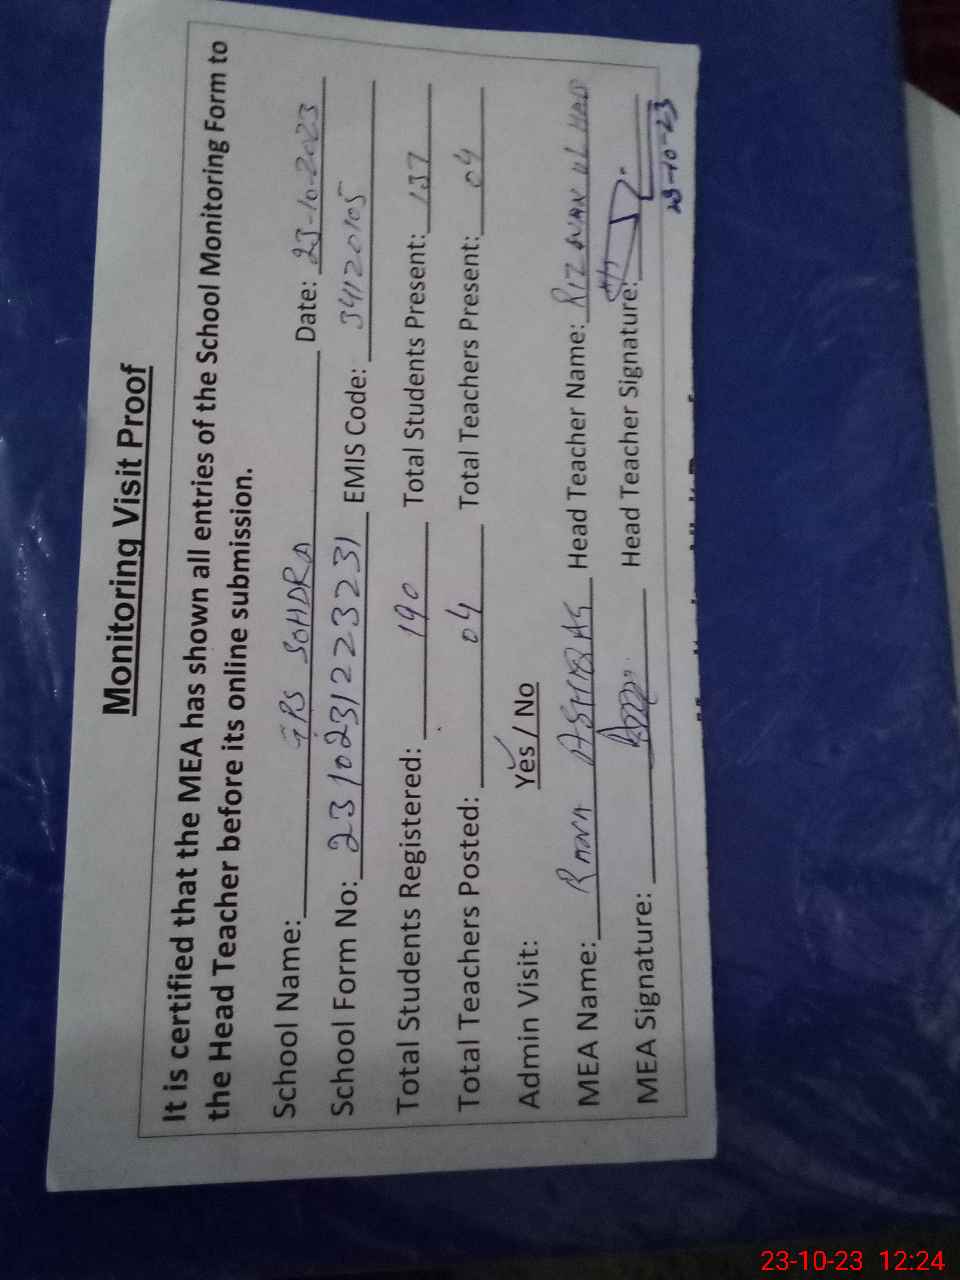 Monitoring Visit Proof
It is certified that the MEA has shown all entries of the School Monitoring Form to
the Head Teacher before its online submission.
School Name: GPS SOHDRA Date: 23-10-2023
School Form No: 2310231223231 EMIS Code: 34120105
Total Students Registered: 190 Total Students Present: 137
Total Teachers Posted: 04 Total Teachers Present: 04
Admin Visit: Yes / No
MEA Name: RANA ASHBAS Head Teacher Name: RIZWAN UL HAQ
MEA Signature: Head Teacher Signature:
23-10-23
23-10-23 12:24